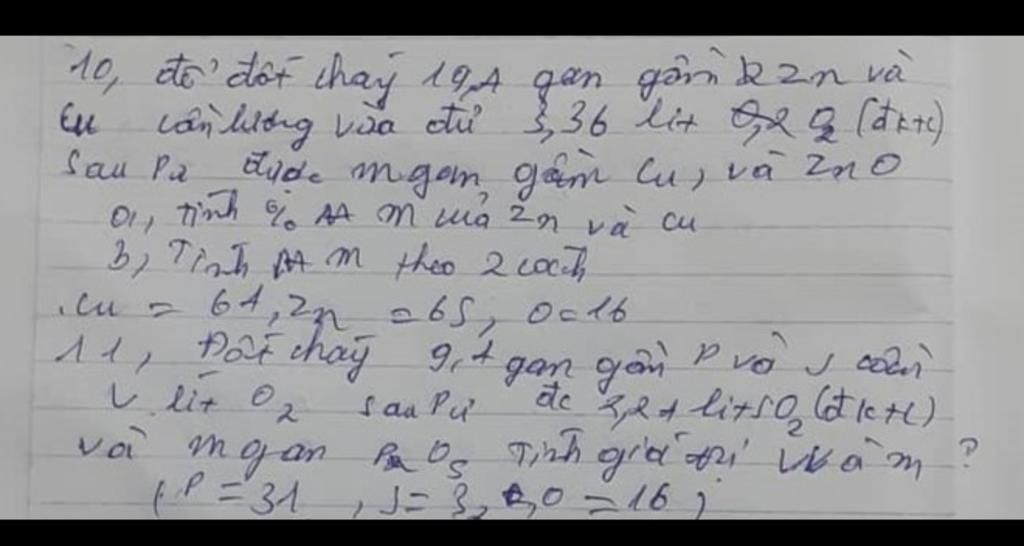 10, để đốt cháy 19,4 gam gồm Zn và
Cu cần lượng vừa đủ 3,36 lit O2 (đktc)
Sau Pư được m gam gồm Cu, và ZnO
a, Tính % m của Zn và Cu
b, Tính m theo 2 cách
Cu = 64, Zn = 65, O = 16
11, Đốt cháy 9,4 gam gồm P và S cần
V lit O2 sau Pư đc 2,24 lit SO2 (đktc)
và m gam P2O5 Tính giá trị V và m ?
( P = 31 , S = 3, O = 16 )